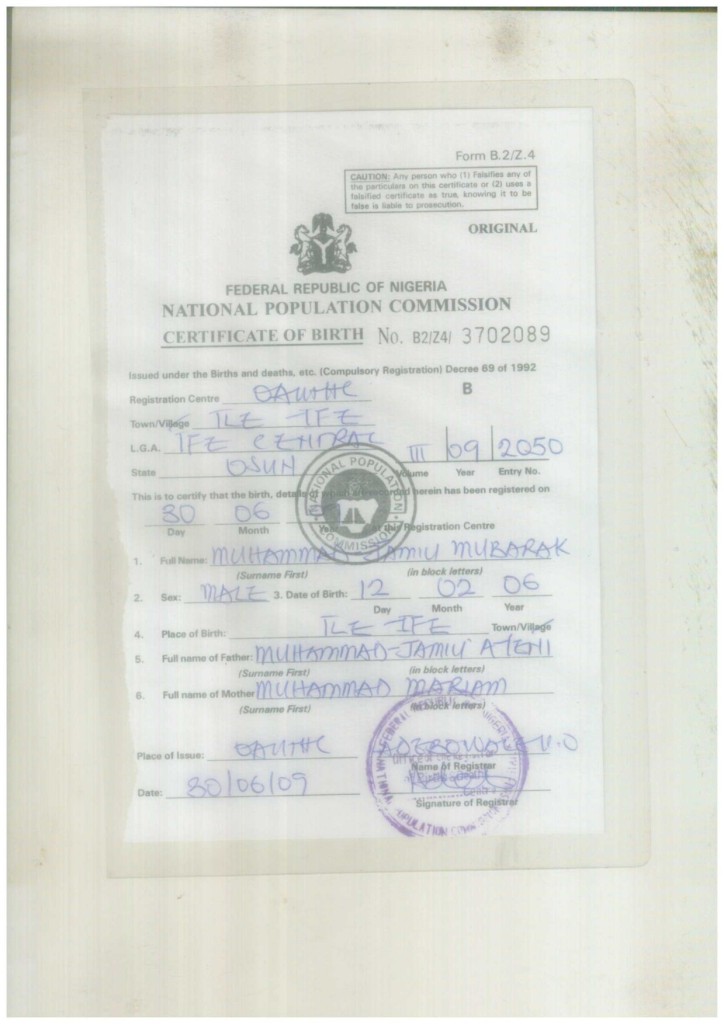 Form B.2/Z.4
CAUTION: Any person who (1) Falsifies any of
the particulars on this certificate or (2) uses a
falsified certificate as true, knowing it to be
false is liable to prosecution.
ORIGINAL
FEDERAL REPUBLIC OF NIGERIA
NATIONAL POPULATION COMMISSION
CERTIFICATE OF BIRTH No. B2/Z4/ 3702089
Issued under the Births and deaths, etc. (Compulsory Registration) Decree 69 of 1992
Registration Centre OAUTHC B
Town/Village ILE-IFE
L.G.A. IFE CENTRAL III 09 2050
State OSUN Volume Year Entry No.
This is to certify that the birth, details of which are recorded herein has been registered on
30 06
Day Month Year at this Registration Centre
NATIONAL POPULATION COMMISSION
1. Full Name: MUHAMMAD-JAMIU MUBARAK
(Surname First) (in block letters)
2. Sex: MALE 3. Date of Birth: 12 02 06
Day Month Year
4. Place of Birth: ILE-IFE Town/Village
5. Full name of Father: MUHAMMAD-JAMIU
(Surname First) (in block letters)
6. Full name of Mother MUHAMMAD MARIAM
(Surname First) (in block letters)
Place of Issue: OAUTHC ADEBOWALE V.O
Name of Registrar
Date: 30/06/09
Signature of Registrar